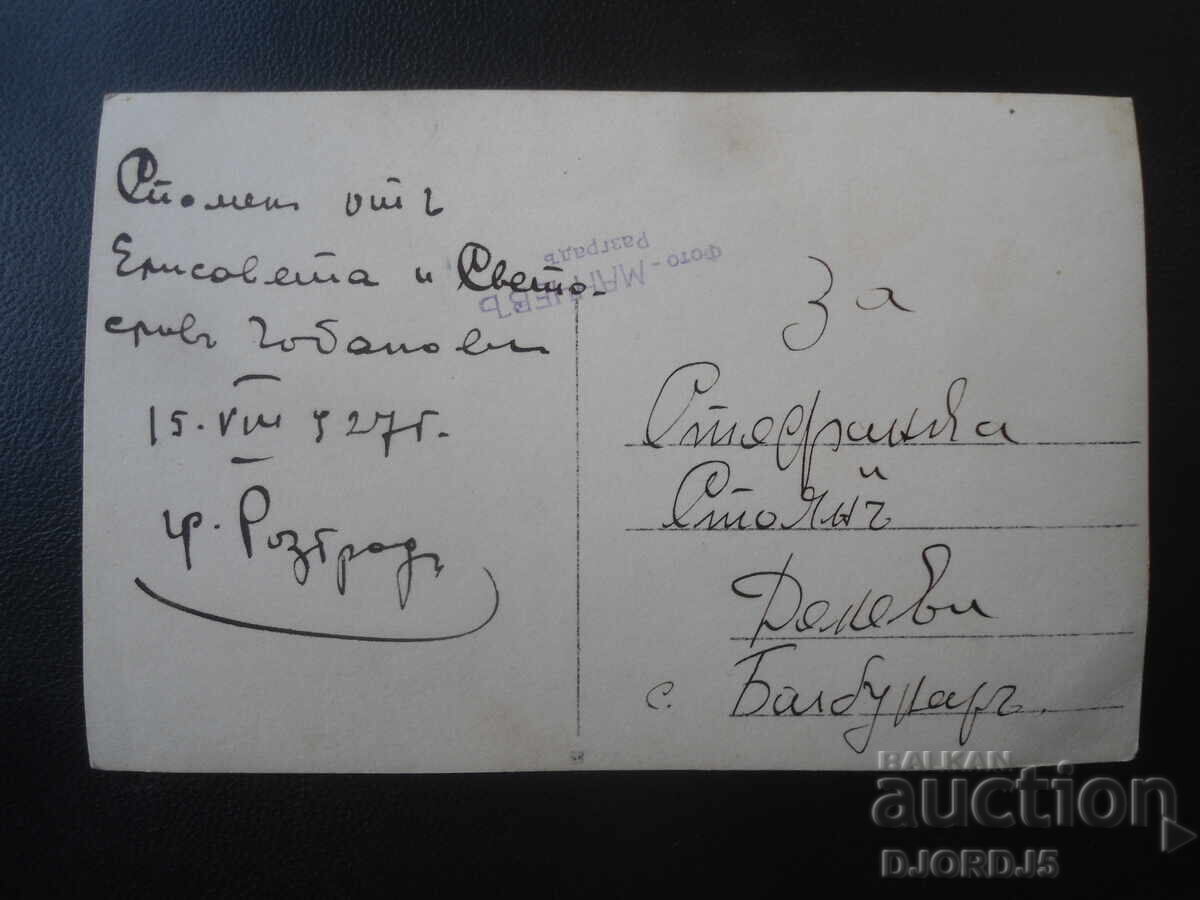 Спомень отъ
Елисавета и Свето-
славъ Чобанови
15. VIII 927 г.
гр. Разградъ
Фото-
Разградъ
За
Стефанка
и
Стоянъ
Делеви
с. Балбунаръ.
BALKAN
auction
DJORDJ5